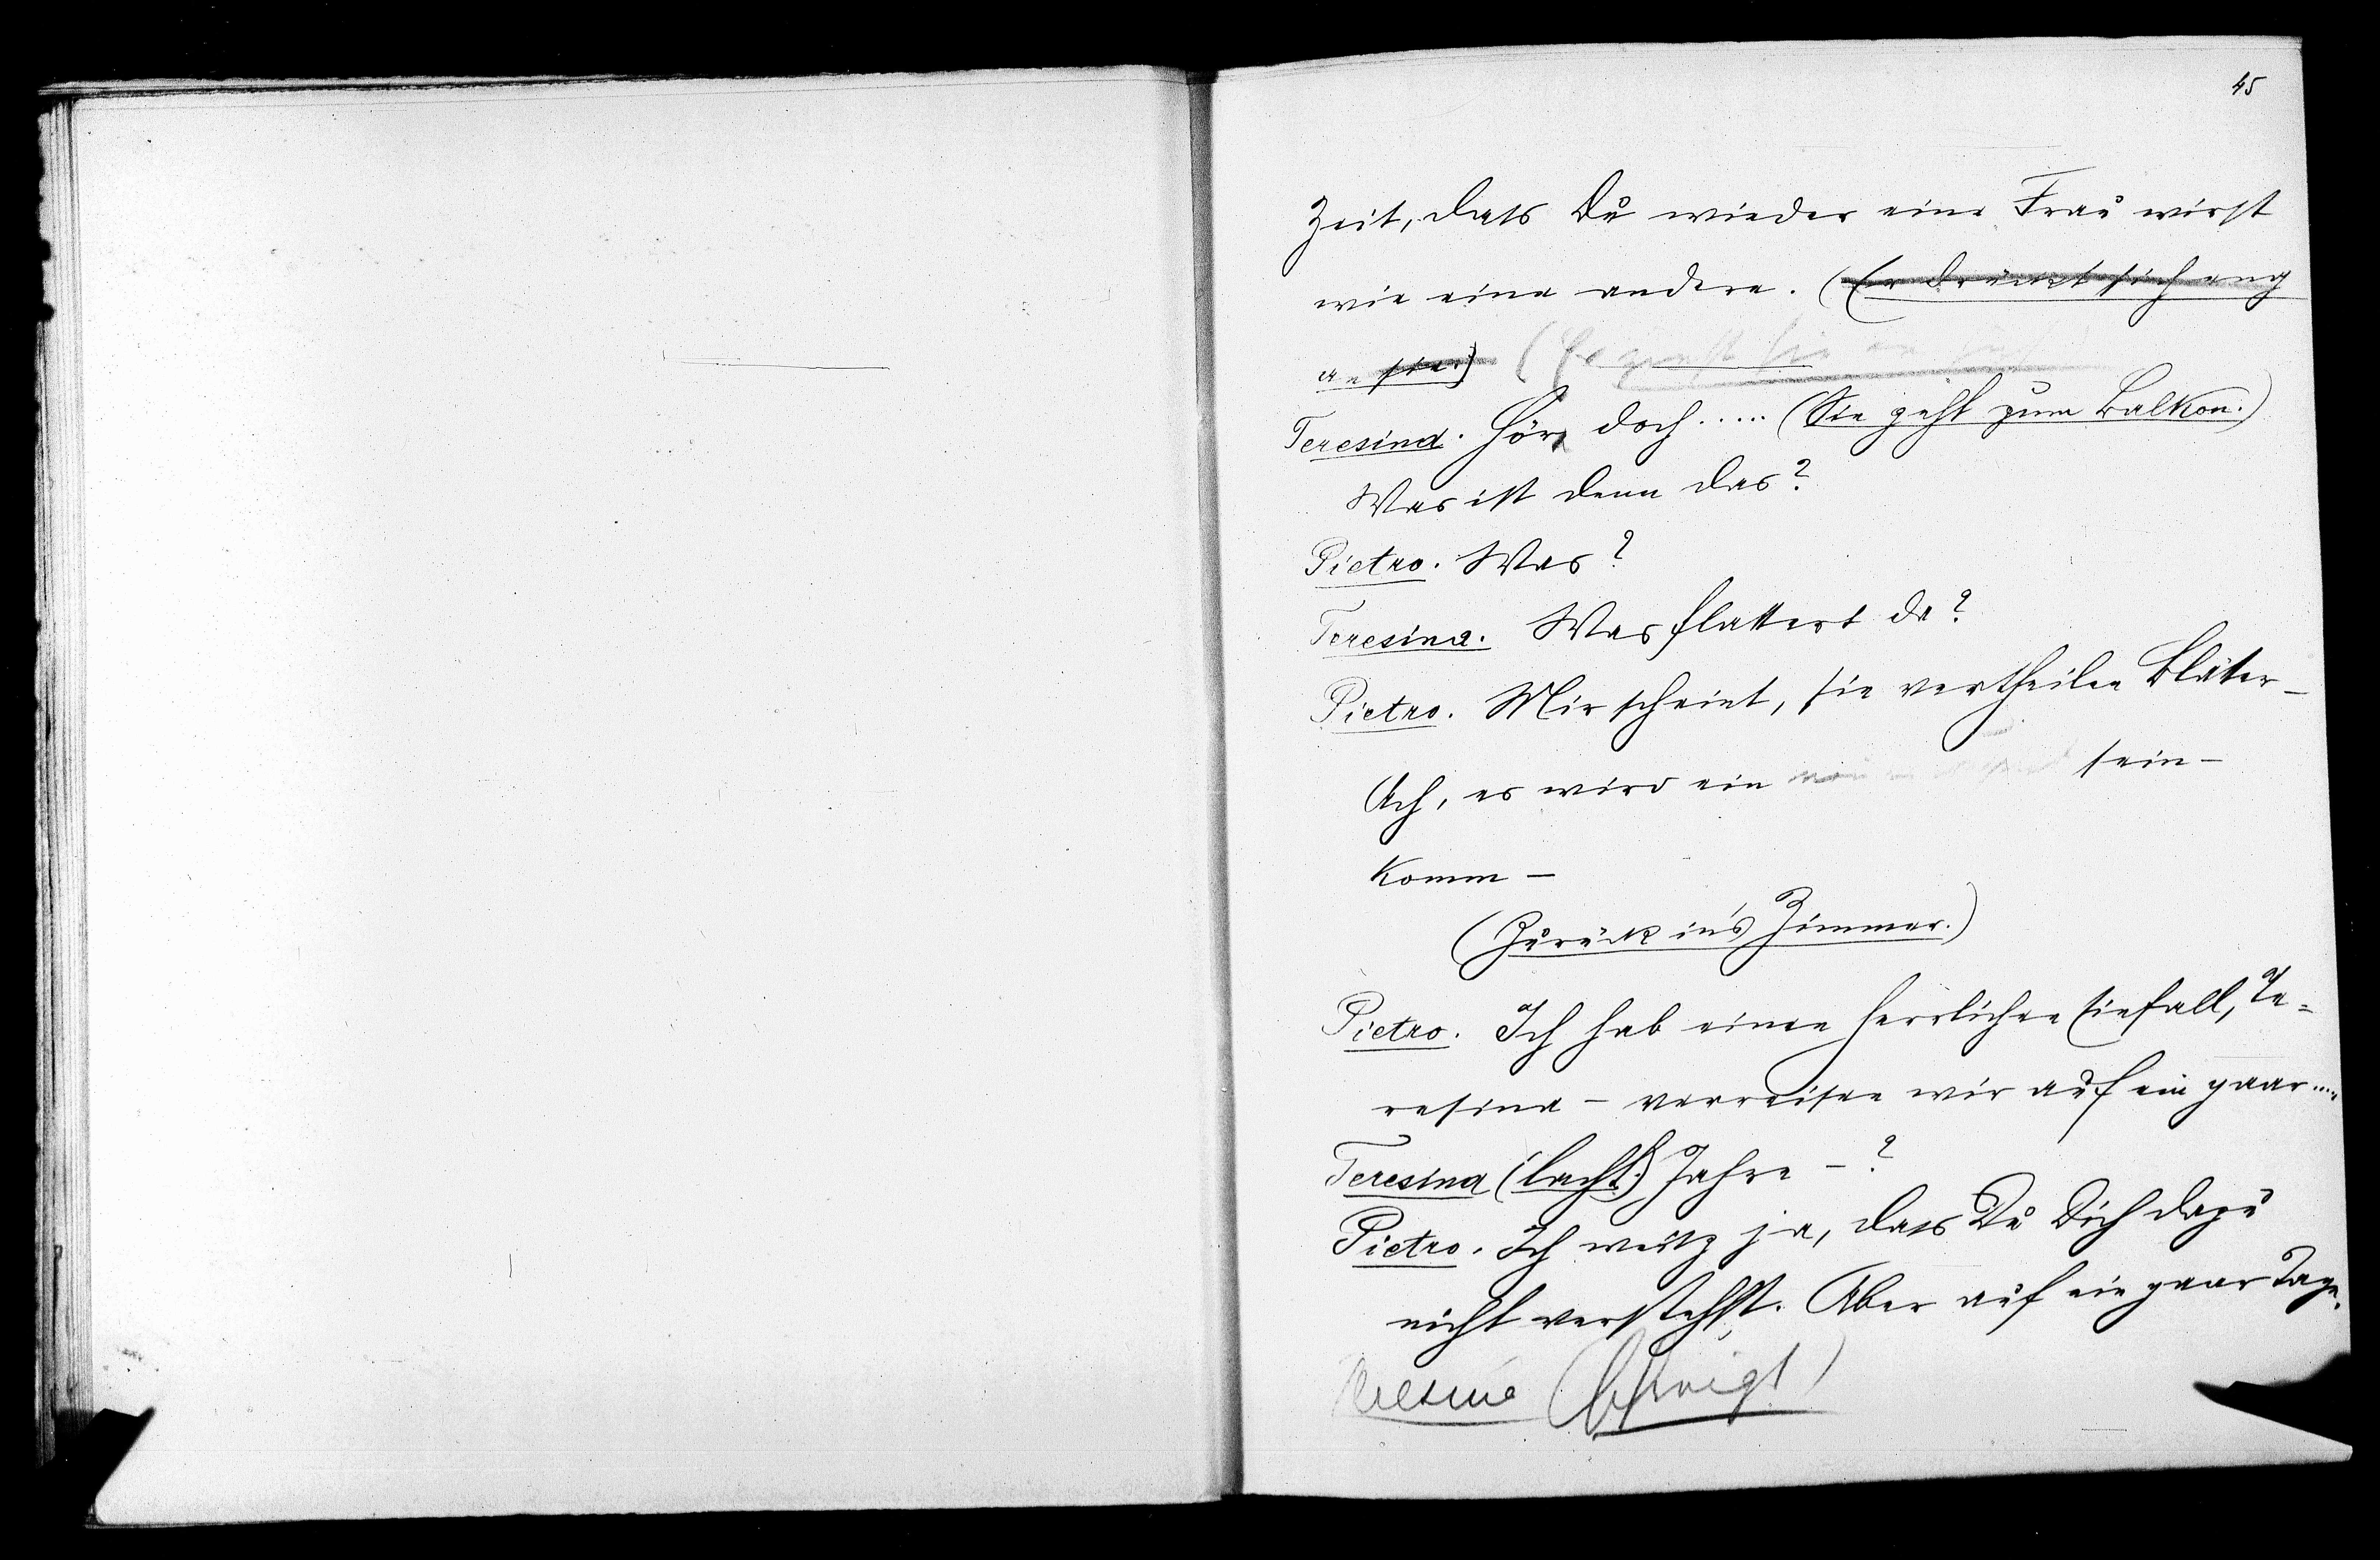 45
Zeit, dass Du wieder eine Frau wirst
wie eine andere. (Er drückt sich eng
an sie.) (Er zieht sie an sich
Teresina. Hör doch..... (Sie geht zum Balkon.)
Was ist denn das?
Pietro. Was?
Teresina. Was flattert da?
Pietro. Mir scheint, sie vertheilen Blätter –
Ach, es wird ein sein –
Komm –
(Zurück in's Zimmer.)
Pietro. Ich hab einen herrlichen Einfall, Te=
resina – verreisen wir auf ein paar....
Teresina (lacht.) Jahre – ?
Pietro. Ich weiß ja, dass Du Dich dazu
nicht verstehst. Aber auf ein paar Tage.
(schweigt)